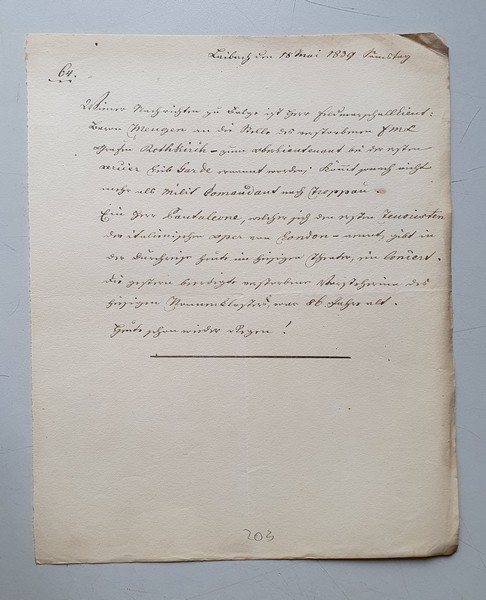 Laibach den 18 Mai 1839 Samstag
64.
Wiener Nachrichten zu Folge ist Herr Feldmarschallieut:
Baron Mengen an die Stelle des verstorbenen FML
Grafen Rothkirch – zum Oberlieutenant bei der ersten
Garde ernannt worden; kömmt somit nicht
mehr als Milit Comandant nach Troppau.
Ein Herr Pantaleone, welcher sich den ersten Tenoristen
der italienischen Oper von London – nennt, gibt in
der Durchreise heute im hiesigen Theater, ein Concert.
Die gestern beerdigte verstorbene Vorsteherinn des
hiesigen Nonnenklosters, war 86 Jahre alt.
Heute schon wieder Regen!
203